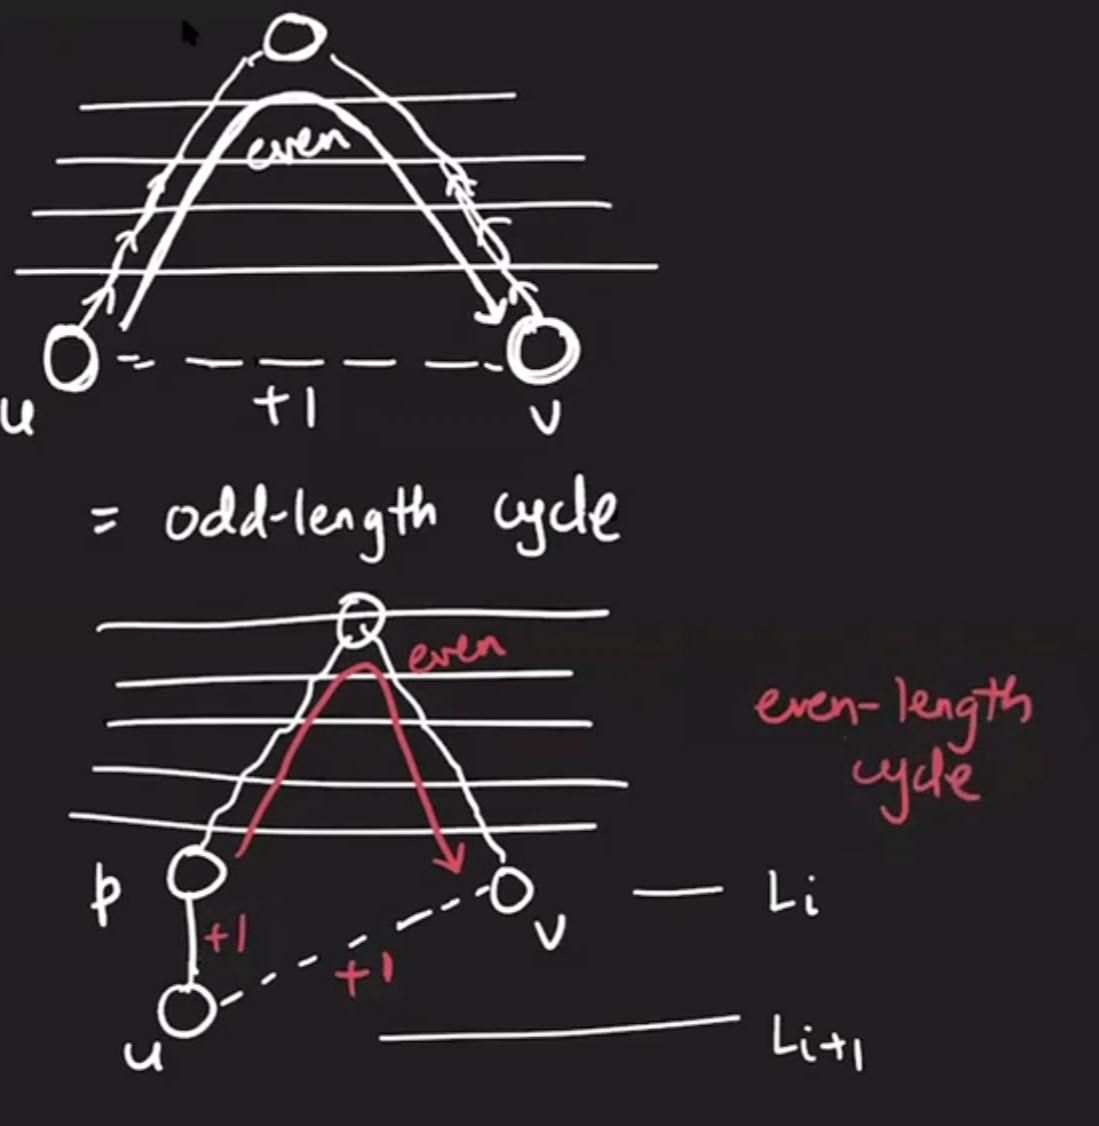 even
+1
u
v
= odd-length cycle
even
even-length
cycle
p
Li
+1
v
+1
u
Li+1